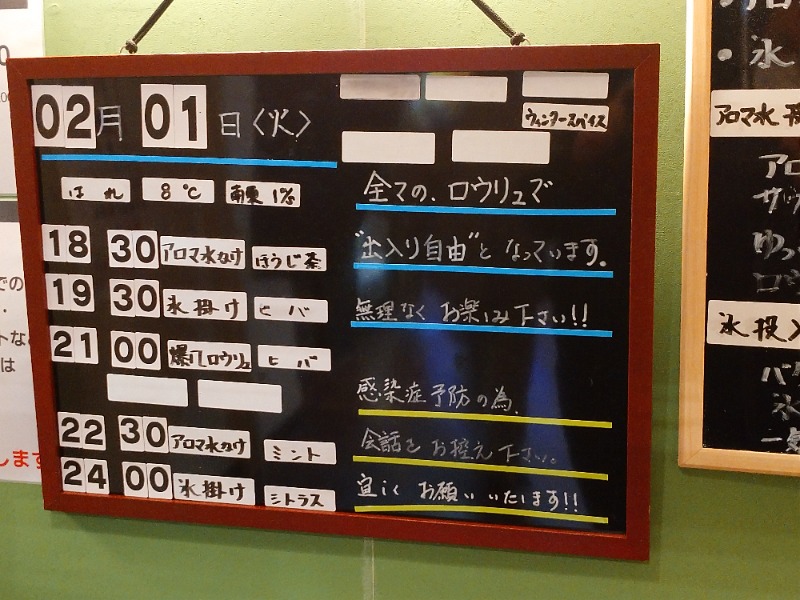 02月 01日〈火〉
ウィンタースパイス
はれ 8℃ 南東 1%
18 30 アロマ水かけ ほうじ茶
19 30 氷掛け ヒバ
21 00 爆風ロウリュ ヒバ
22 30 アロマ水かけ ミント
24 00 氷掛け シトラス
全ての、ロウリュで
"出入り自由"となっています。
無理なく お楽しみ下さい!!
感染症予防の為、
会話をお控え下さい。
宜しく お願いいたします!!
・氷
アロマ水
アロ
ゆっ
ロウ
氷投入
バケ
氷
一気
での
トな
は
します